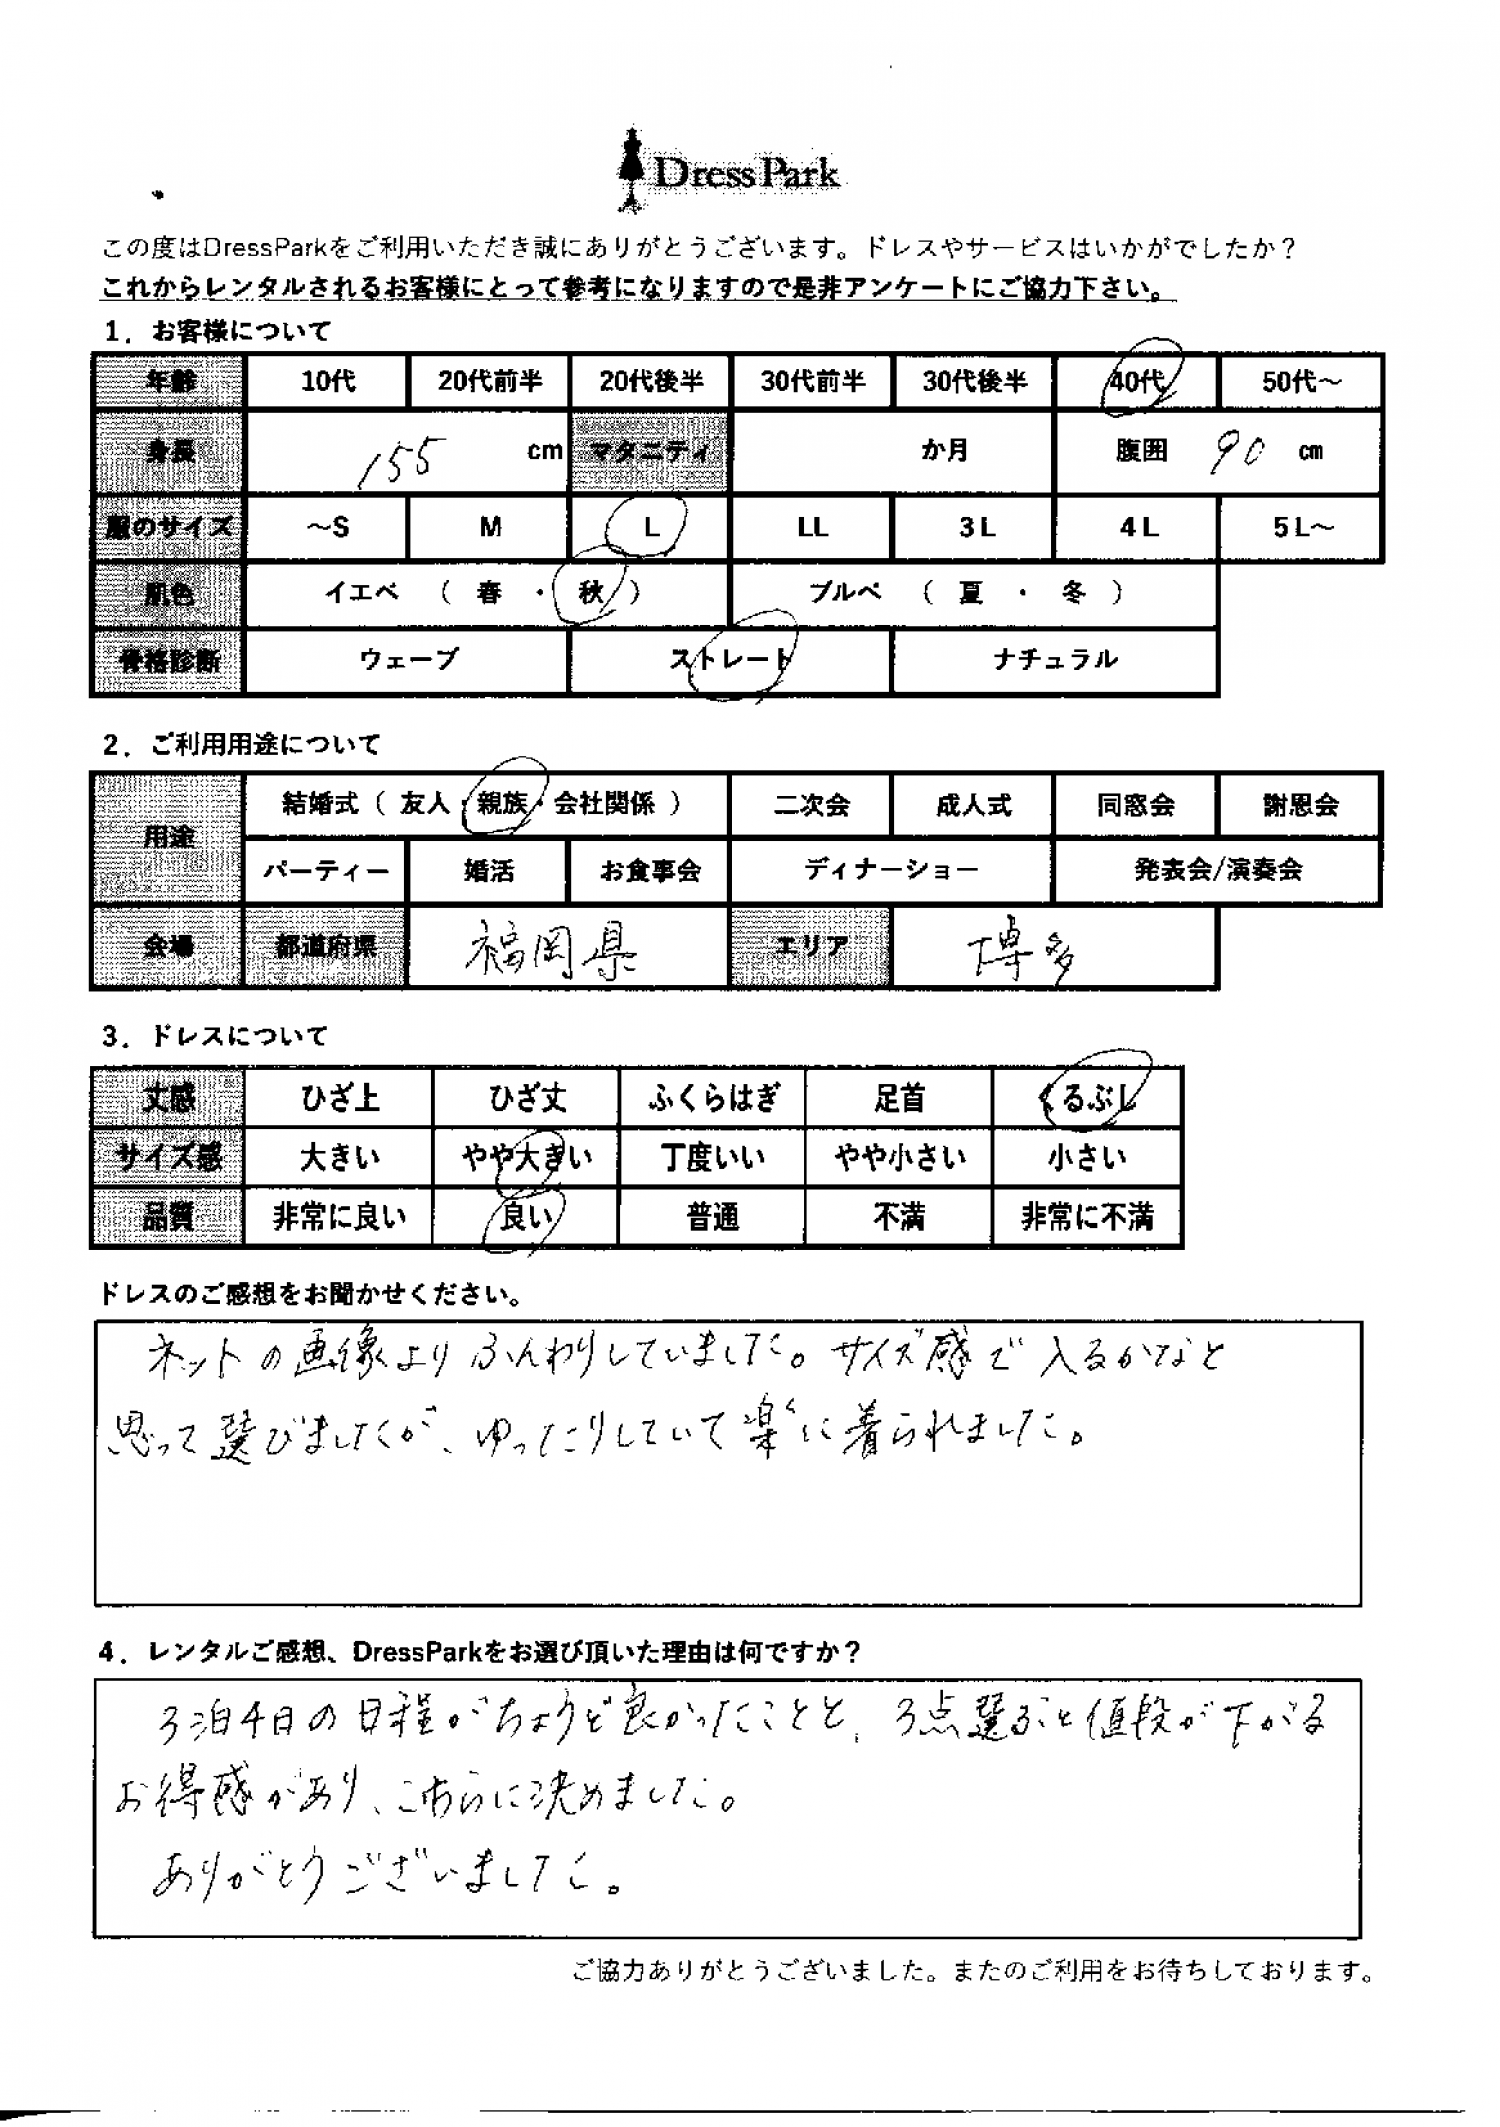 DressPark
この度はDressParkをご利用いただき誠にありがとうございます。ドレスやサービスはいかがでしたか？
これからレンタルされるお客様にとって参考になりますので是非アンケートにご協力下さい。
1．お客様について
年齢 10代 20代前半 20代後半 30代前半 30代後半 40代 50代～
身長 155 cm マタニティ か月 腹囲 90 cm
服のサイズ ～S M L LL 3L 4L 5L～
肌色 イエベ （ 春 ・ 秋 ） ブルベ （ 夏 ・ 冬 ）
骨格診断 ウェーブ ストレート ナチュラル
2．ご利用用途について
用途 結婚式（ 友人・親族・会社関係 ） 二次会 成人式 同窓会 謝恩会
パーティー 婚活 お食事会 ディナーショー 発表会/演奏会
会場 都道府県 福岡県 エリア 博多
3．ドレスについて
丈感 ひざ上 ひざ丈 ふくらはぎ 足首 くるぶし
サイズ感 大きい やや大きい 丁度いい やや小さい 小さい
品質 非常に良い 良い 普通 不満 非常に不満
ドレスのご感想をお聞かせください。
ネットの画像よりふんわりしていました。サイズ感で入るかなと
思って選びましたが、ゆったりしていて楽に着られました。
4．レンタルご感想、DressParkをお選び頂いた理由は何ですか？
3泊4日の日程がちょうど良かったことと、3点選ぶと値段が下がる
お得感があり、こちらに決めました。
ありがとうございました。
ご協力ありがとうございました。またのご利用をお待ちしております。